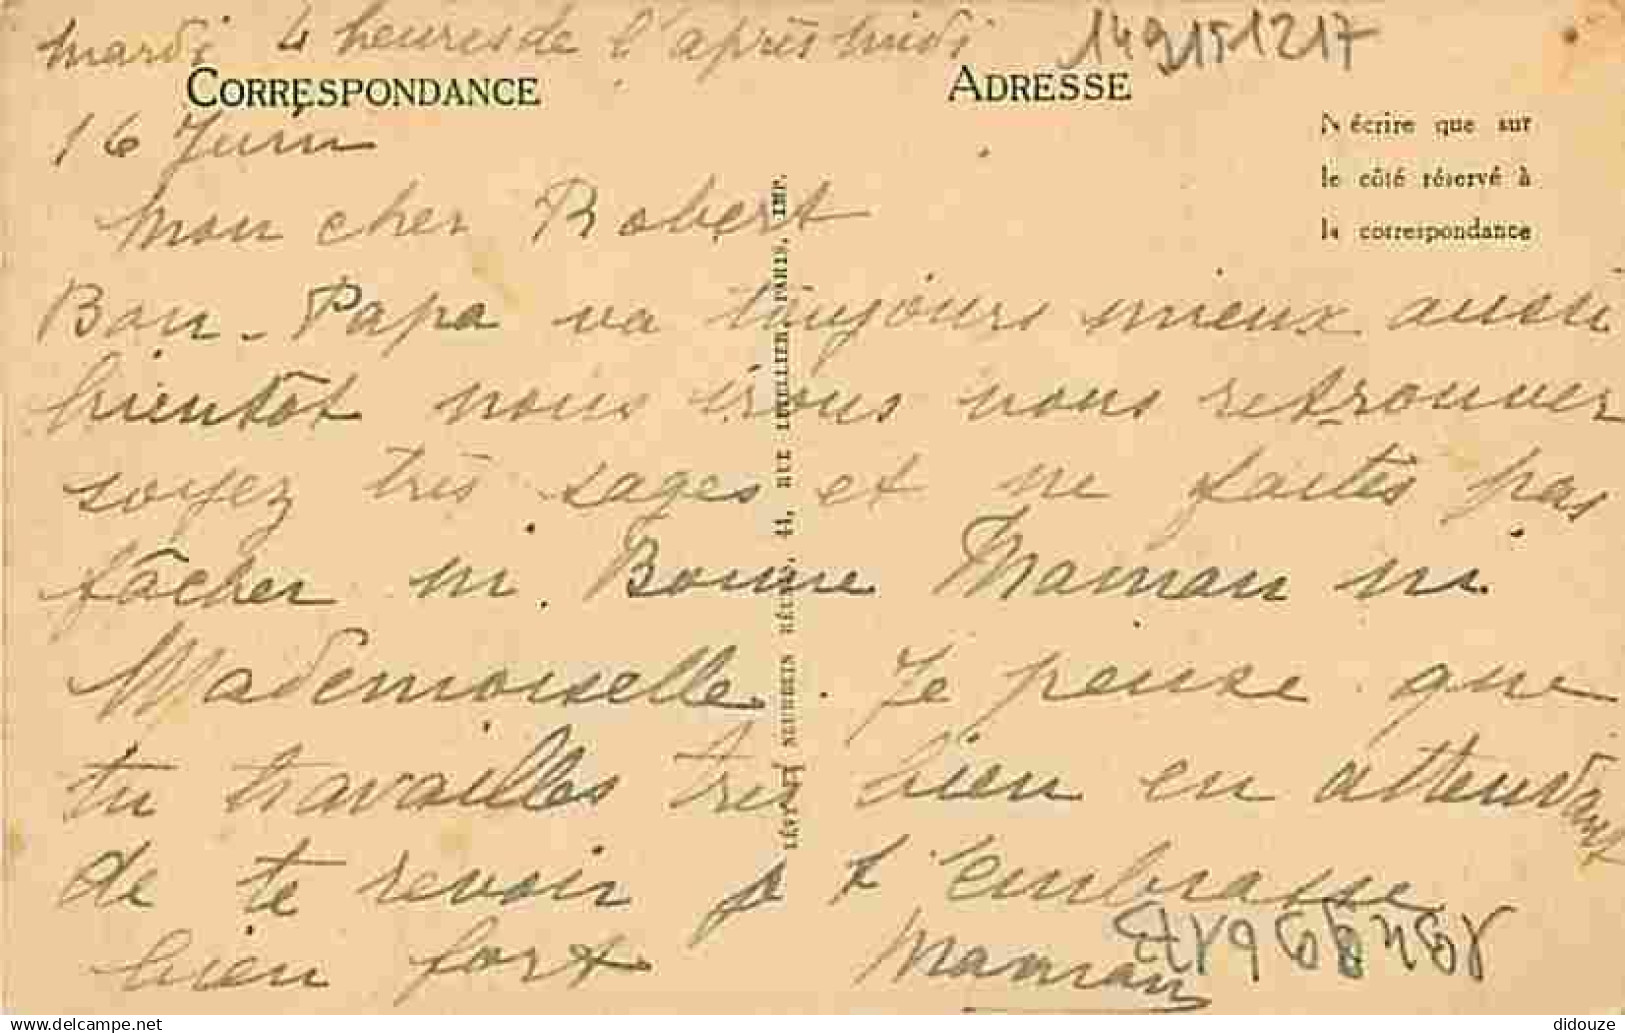 mardi 4 heures de l'après midi
1491511217
CORRESPONDANCE
ADRESSE
16 Juin
N écrire que sur
le côté réservé à
la correspondance
Mon cher Robert
Bon-Papa va toujours mieux aussi
bientôt nous irons nous retrouver
soyez très sages et ne faites pas
fâcher ni Bonne Maman ni
Mademoiselle. Je pense que
tu travailles très bien en attendant
de te revoir je t'embrasse
bien fort Maman
LÉVY ET NEURDEIN RÉUNIS, 44, RUE LETELLIER, PARIS, IMP.
Delcampe.net
didouze